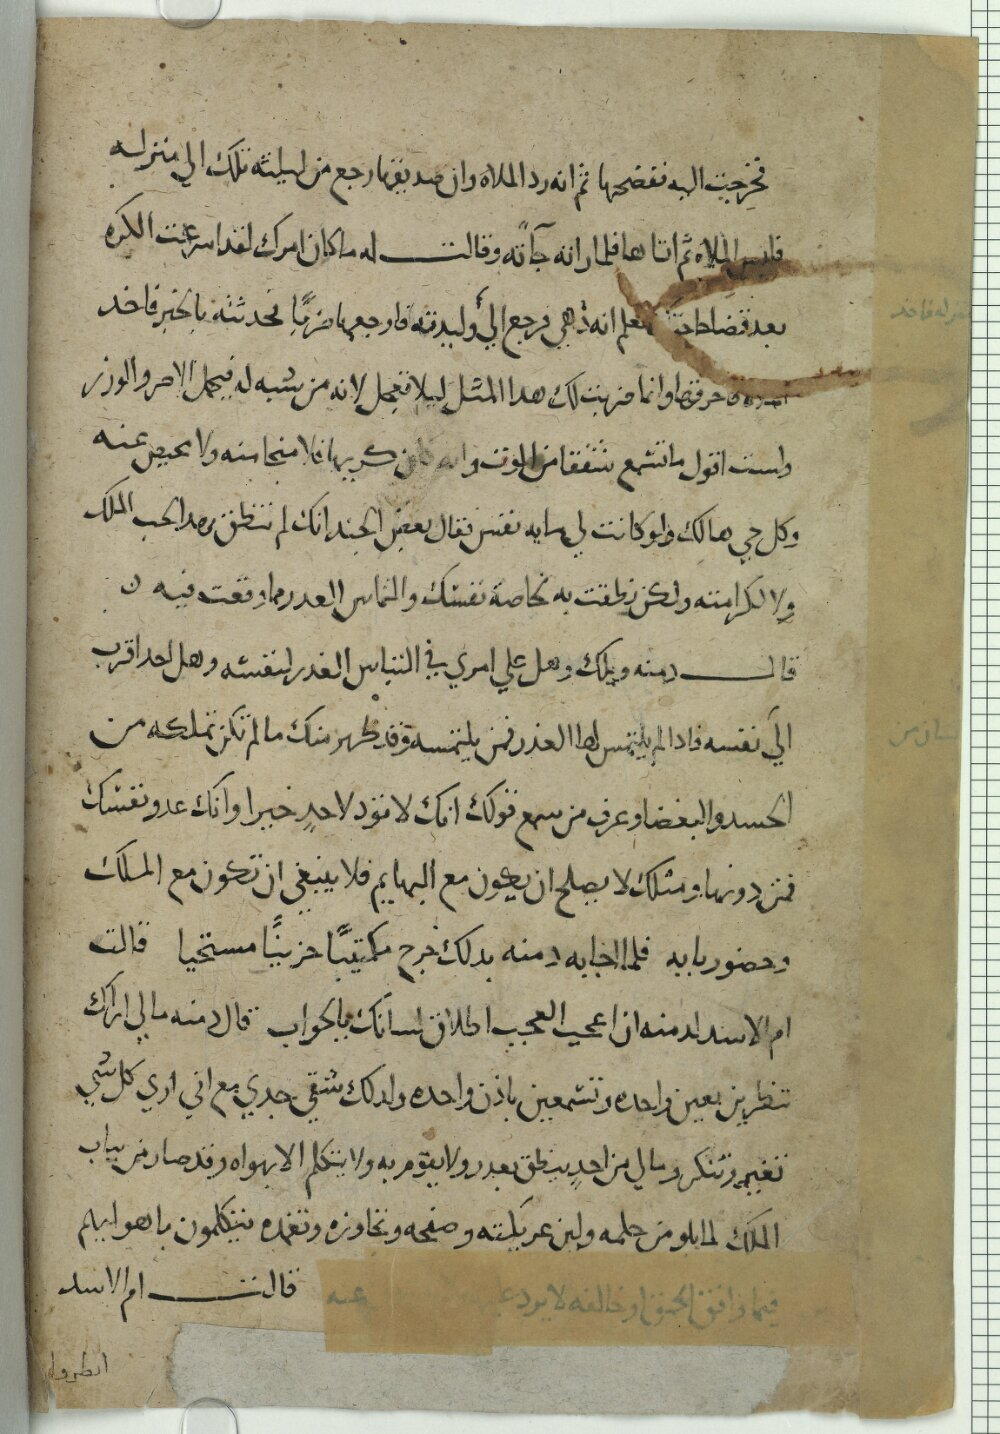 فخرجت اليه نفضحها ثم انه رد الملاه وان صديقها رجع من ليلته تلك الي منزله
فلبس الملاه ثم اتاها فلما راته جآته وقالت له ما كان امرك لقد اسرعت الكره
بعد قضا حاجتك فعلم انه دهي فرجع الي وليدته فاوجعها ضربًا فحدثته بالخبر فاخد
فاحرقها وانما ضربت لك هدا المثل ليلا تعجل لانه من شبه له فيحمل الاصر والوزر
ولست اقول ما تسمع شفقا من الموت وانه كان كريها فلا منجا منه ولا محيص عنه
وكل حي هالك ولو كانت لي مايه نفس فقال بعض الجند انك لم تنطق بهدا لحب الملك
ولا لكرامته ولكن نطقت به لخاصة نفسك والتماس العدر مما وقعت فيه ن
قال دمنه ويلك وهل علي امري في التماس العدر لنفسه وهل احد اقرب
الي نفسه فادا لم يلتمس لها العذر فمن يلتمسه وقد ظهر منك ما لم تكن تملكه من
الحسد والبغضا وعرف من سمع قولك انك لا تود لاحدٍ خيرا وانك عدو نفسك
فمن دونها ومثلك لا يصلح ان يكون مع البهايم فلا ينبغي ان تكون مع الملك
وحضور بابه فلما اجابه دمنه بدلك خرج مكتيبًا حزينًا مستحيا قالت
ام الاسد لدمنه ان اعجب العجب اطلاق لسانك بالجواب قال دمنه ما لي اراك
تنظرين بعين واحده وتسمعين بادن واحده ولدلك شقي جدي مع اني اري كل شي
تغير وتنكر وما لي من احدٍ ينطق بعدر ولا يقوم به ولا يتكلم الا بهواه وقد صار من بباب
الملك لما بلو من حلمه ولين عريكته وصفحه وتجاوزه وتغمده يتكلمون باهوايهم
فيما وافق الحق او خالفه لا يرد عليهم عنه قالت ام الاسد
انظروا